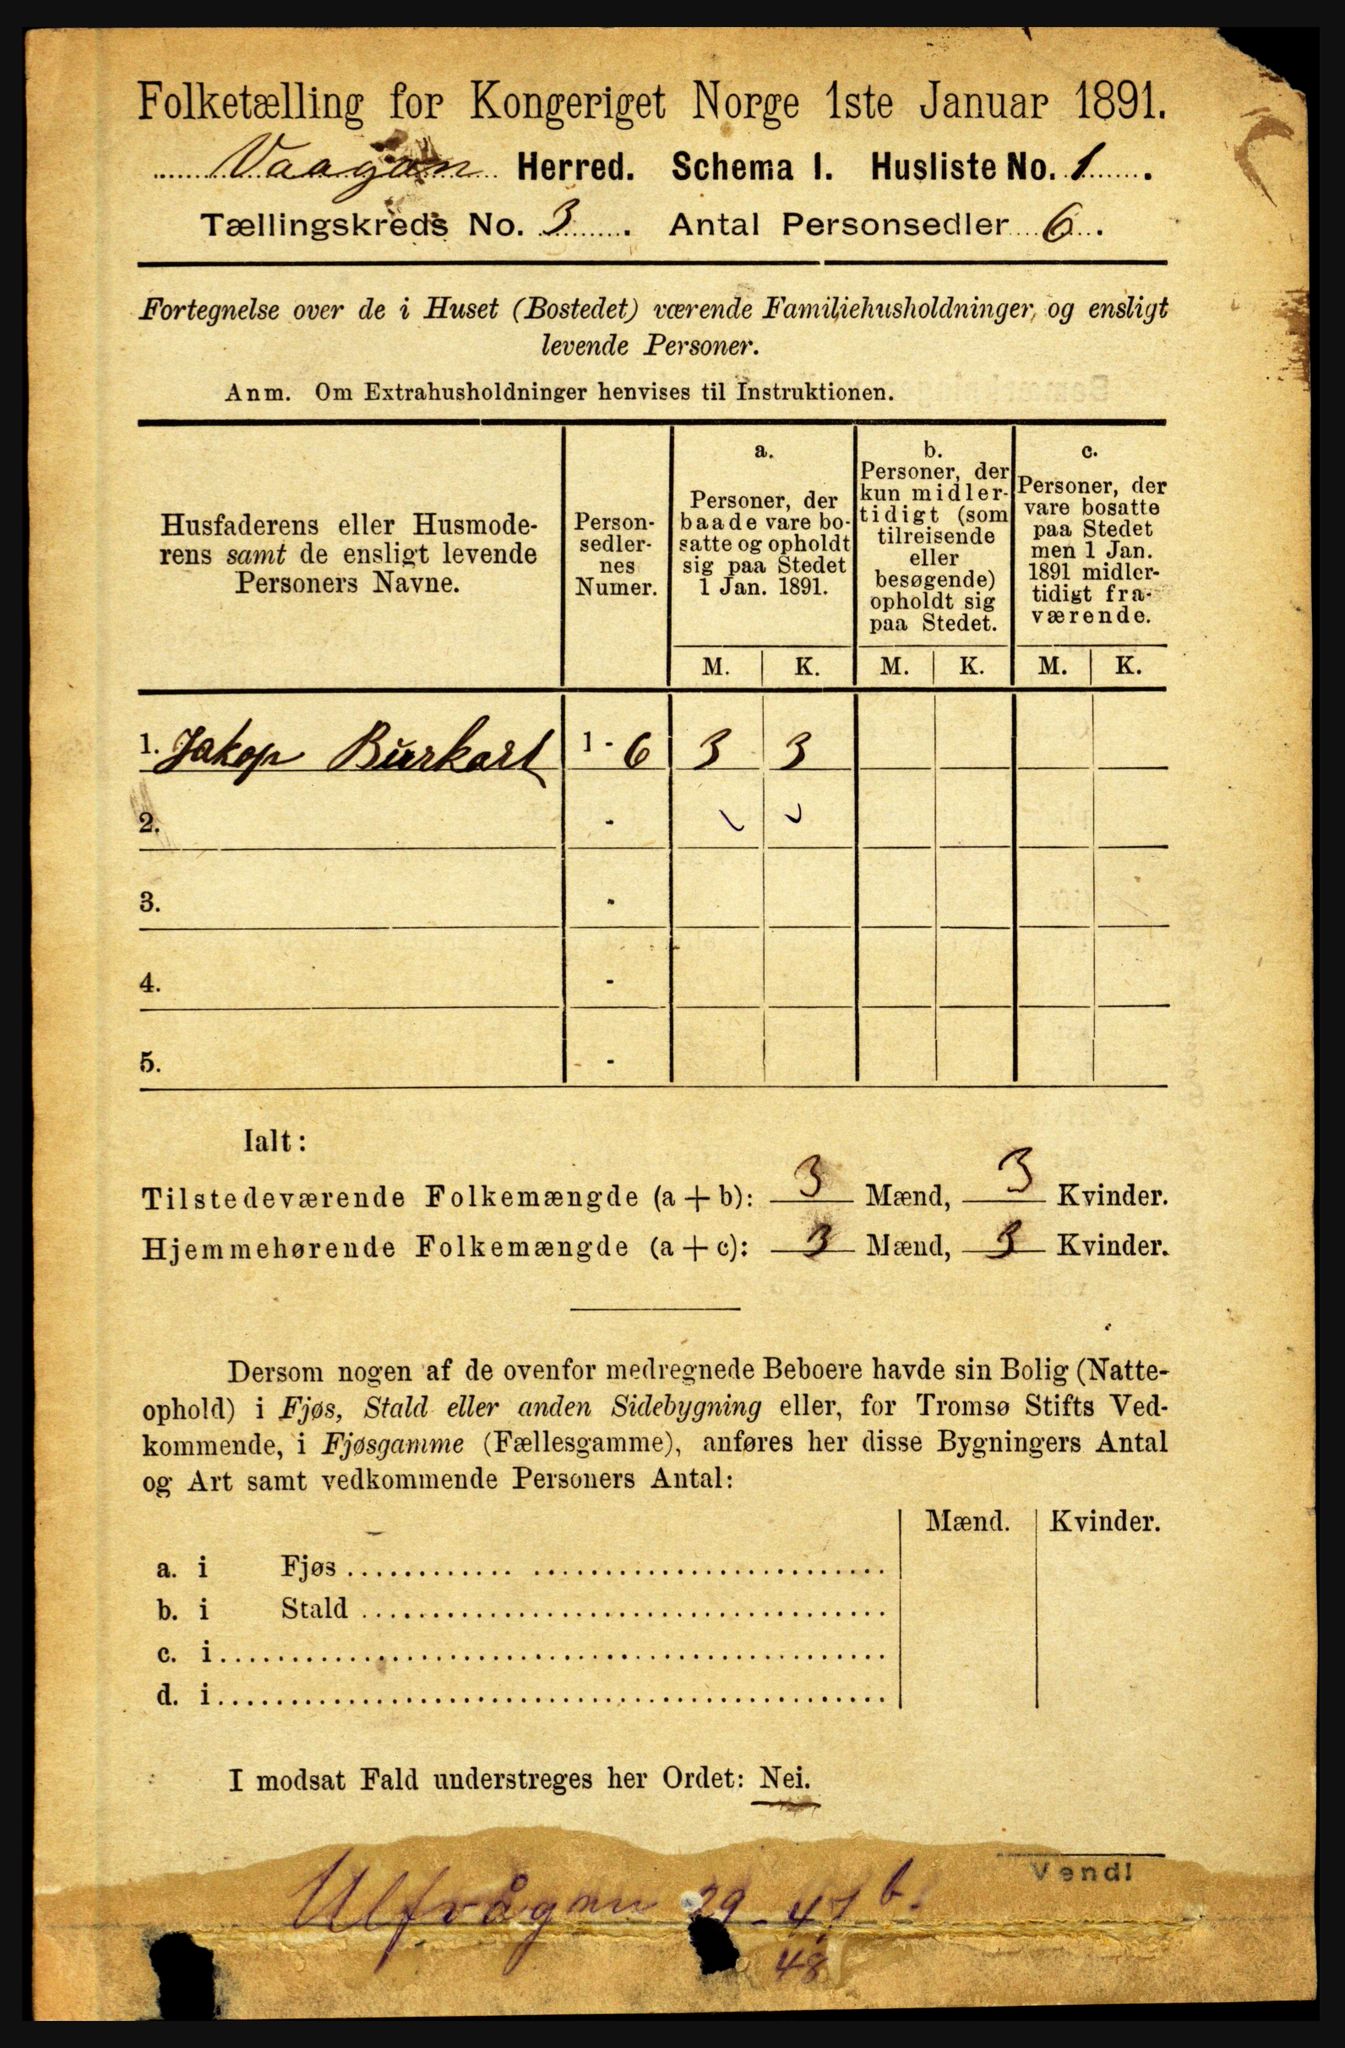 Folketælling for Kongeriget Norge 1ste Januar 1891.
Vaagan Herred. Schema I. Husliste No. 1.
Tællingskreds No. 3. Antal Personsedler 6.
Fortegnelse over de i Huset (Bostedet) værende Familiehusholdninger, og ensligt
levende Personer.
Anm. Om Extrahusholdninger henvises til Instruktionen.
Husfaderens eller Husmode-
rens samt de ensligt levende
Personers Navne.
Person-
sedler-
nes
Numer.
a.
Personer, der
baade vare bo-
satte og opholdt
sig paa Stedet
1 Jan. 1891.
b.
Personer, der
kun midler-
tidigt (som
tilreisende
eller
besøgende)
opholdt sig
paa Stedet.
c.
Personer, der
vare bosatte
paa Stedet
men 1 Jan.
1891 midler-
tidigt fra-
værende.
M. K. M. K. M. K.
1. Jakop Burkart 1 - 6 3 3
2. -
3. -
4. -
5. -
Ialt:
Tilstedeværende Folkemængde (a + b): 3 Mænd, 3 Kvinder.
Hjemmehørende Folkemængde (a + c): 3 Mænd, 3 Kvinder.
Dersom nogen af de ovenfor medregnede Beboere havde sin Bolig (Natte-
ophold) i Fjøs, Stald eller anden Sidebygning eller, for Tromsø Stifts Ved-
kommende, i Fjøsgamme (Fællesgamme), anføres her disse Bygningers Antal
og Art samt vedkommende Personers Antal:
Mænd. Kvinder.
a. i Fjøs
b. i Stald
c. i
d. i
I modsat Fald understreges her Ordet: Nei.
Vend!
Ulfvågen 29 - 47 b.
48